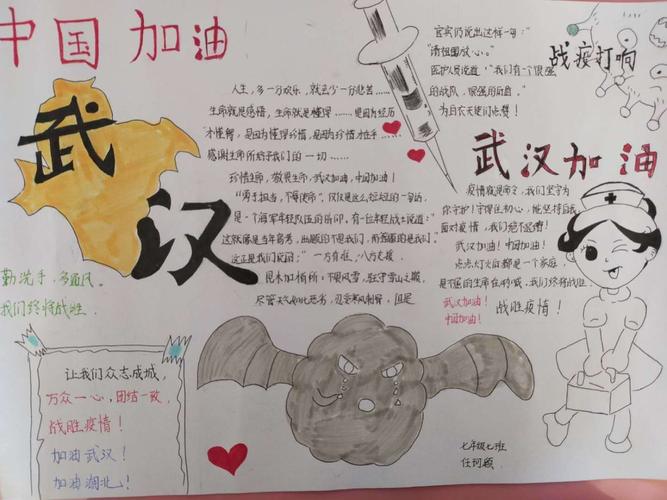 中国加油
武
汉
勤洗手，多通风。
我们终将战胜.
让我们众志成城，
万众一心，团结一致，
战胜疫情！
加油武汉！
加油湖北！
人生，多一分欢乐，就去少一分悲苦……
生命就是感悟，生命就是懂得……是因为经历
才懂得，是因为懂得珍惜，是因为珍惜才胜手……
感谢生命所给予我们的一切……
珍惜生命，敬畏生命，武汉加油，中国加油！
"勇于担当，不辱使命"，仅仅是这么短短的一句话，
是一个海军年轻队伍的所仰，有一位年轻战士说道："
这就像是当年高考，出题的不是我们，而答题的是我们。
这正是我们反团；" 一方有难，八方支援，
昆木加梢所，不畏风雪，驻守雪山之巅，
尽管天气如此恶劣，忍受寒风刺骨，但是
官兵仍说出这样一句："
"请祖国放心。"
医护人员说道："我们有一个很强
的战队，很强的后盾。"
为白衣天使们点赞！
战疫打响
武汉加油
疫情就是命令，我们坚守为
你守护！守得住初心，能坚持自我
面对疫情，我们绝不退缩！
武汉加油！中国加油！
点点灯火后都是一个家庭，
是不屈的生命在呼喊，我们终将战胜
武汉加油！
中国加油！
战胜疫情！
七年级七班
任珂颖